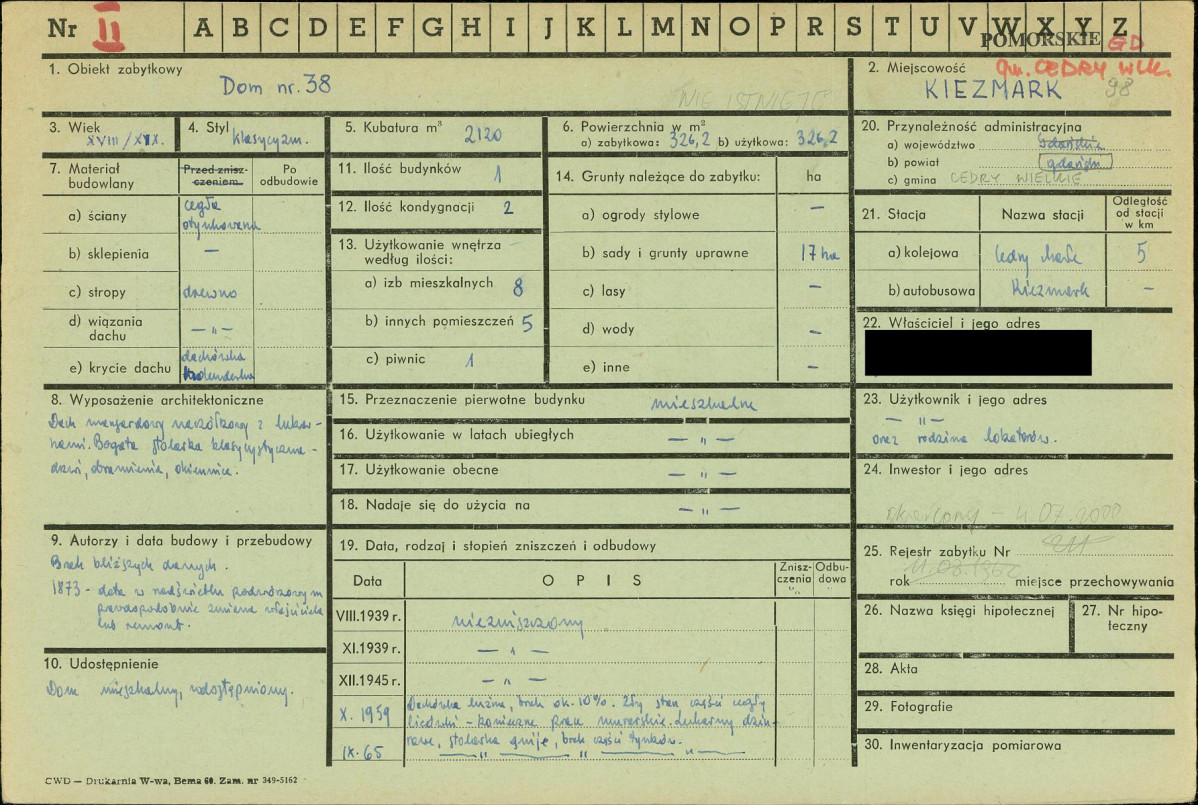 Nr II A B C D E F G H I J K L M N O P R S T U V W X Y Z
POMORSKIE GD
gm. CEDRY WLK.
1. Obiekt zabytkowy
Dom nr. 38
NIE ISTNIEJE
2. Miejscowość
KIEZMARK 98
3. Wiek
XVIII/XIX.
4. Styl klasycyzm.
5. Kubatura m³ 2120
6. Powierzchnia w m²
a) zabytkowa: 326,2 b) użytkowa: 326,2
20. Przynależność administracyjna
a) województwo Gdańskie
b) powiat gdański
c) gmina CEDRY WIELKIE
7. Materiał budowlany
Przed zniszczeniem
Po odbudowie
a) ściany cegła otynkowana
b) sklepienia —
c) stropy drewno
d) wiązania dachu — „ —
e) krycie dachu dachówka holenderka
11. Ilość budynków 1
12. Ilość kondygnacji 2
13. Użytkowanie wnętrza według ilości:
a) izb mieszkalnych 8
b) innych pomieszczeń 5
c) piwnic 1
14. Grunty należące do zabytku: ha
a) ogrody stylowe —
b) sady i grunty uprawne 17 ha
c) lasy —
d) wody —
e) inne —
21. Stacja
Nazwa stacji
Odległość od stacji w km
a) kolejowa Cedry Małe 5
b) autobusowa Kiezmark —
22. Właściciel i jego adres
8. Wyposażenie architektoniczne
Dach mansardowy naczółkowy z lukar-
nami. Bogata stolarka klasycystyczna -
drzwi, obramienia, okiennice.
15. Przeznaczenie pierwotne budynku mieszkalne
16. Użytkowanie w latach ubiegłych — „ —
17. Użytkowanie obecne — „ —
18. Nadaje się do użycia na — „ —
23. Użytkownik i jego adres
— „ —
oraz rodzina lokatorów.
24. Inwestor i jego adres
skreślony – 4.07.2000
9. Autorzy i data budowy i przebudowy
Brak bliższych danych.
1873 - data w nadświetlu
prawdopodobnie zmiana właściciela
lub remont.
19. Data, rodzaj i stopień zniszczeń i odbudowy
Data
O P I S
Zniszczenia "/„
Odbudowa
VIII.1939 r. niezniszczony
XI.1939 r. — „ —
XII.1945 r. — „ —
X. 1959 Dachówka luźna, brak ok. 10%. Zły stan części cegły
licówki - konieczne prace murarskie.
stolarka gnije, brak części tynków.
IX. 65 — „ — „ — „ —
25. Rejestr zabytku Nr
rok 11.08.1962 miejsce przechowywania
26. Nazwa księgi hipotecznej
27. Nr hipoteczny
10. Udostępnienie
Dom mieszkalny, udostępniony.
28. Akta
29. Fotografie
30. Inwentaryzacja pomiarowa
CWD — Drukarnia W-wa, Bema 60. Zam. nr 349-5162